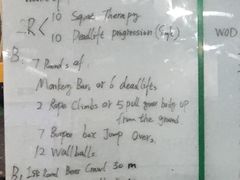 10 Squat Therapy
R< 10 Deadlift Progression
B.
7 Rounds of
Monkey Bars or 6 deadlifts
2 Rope Climbs or 5 pull your body up
from the ground
7 Burpee box Jump Overs
12 Wallballs
B, 1st Round Bear Crawl 30 m
WOD